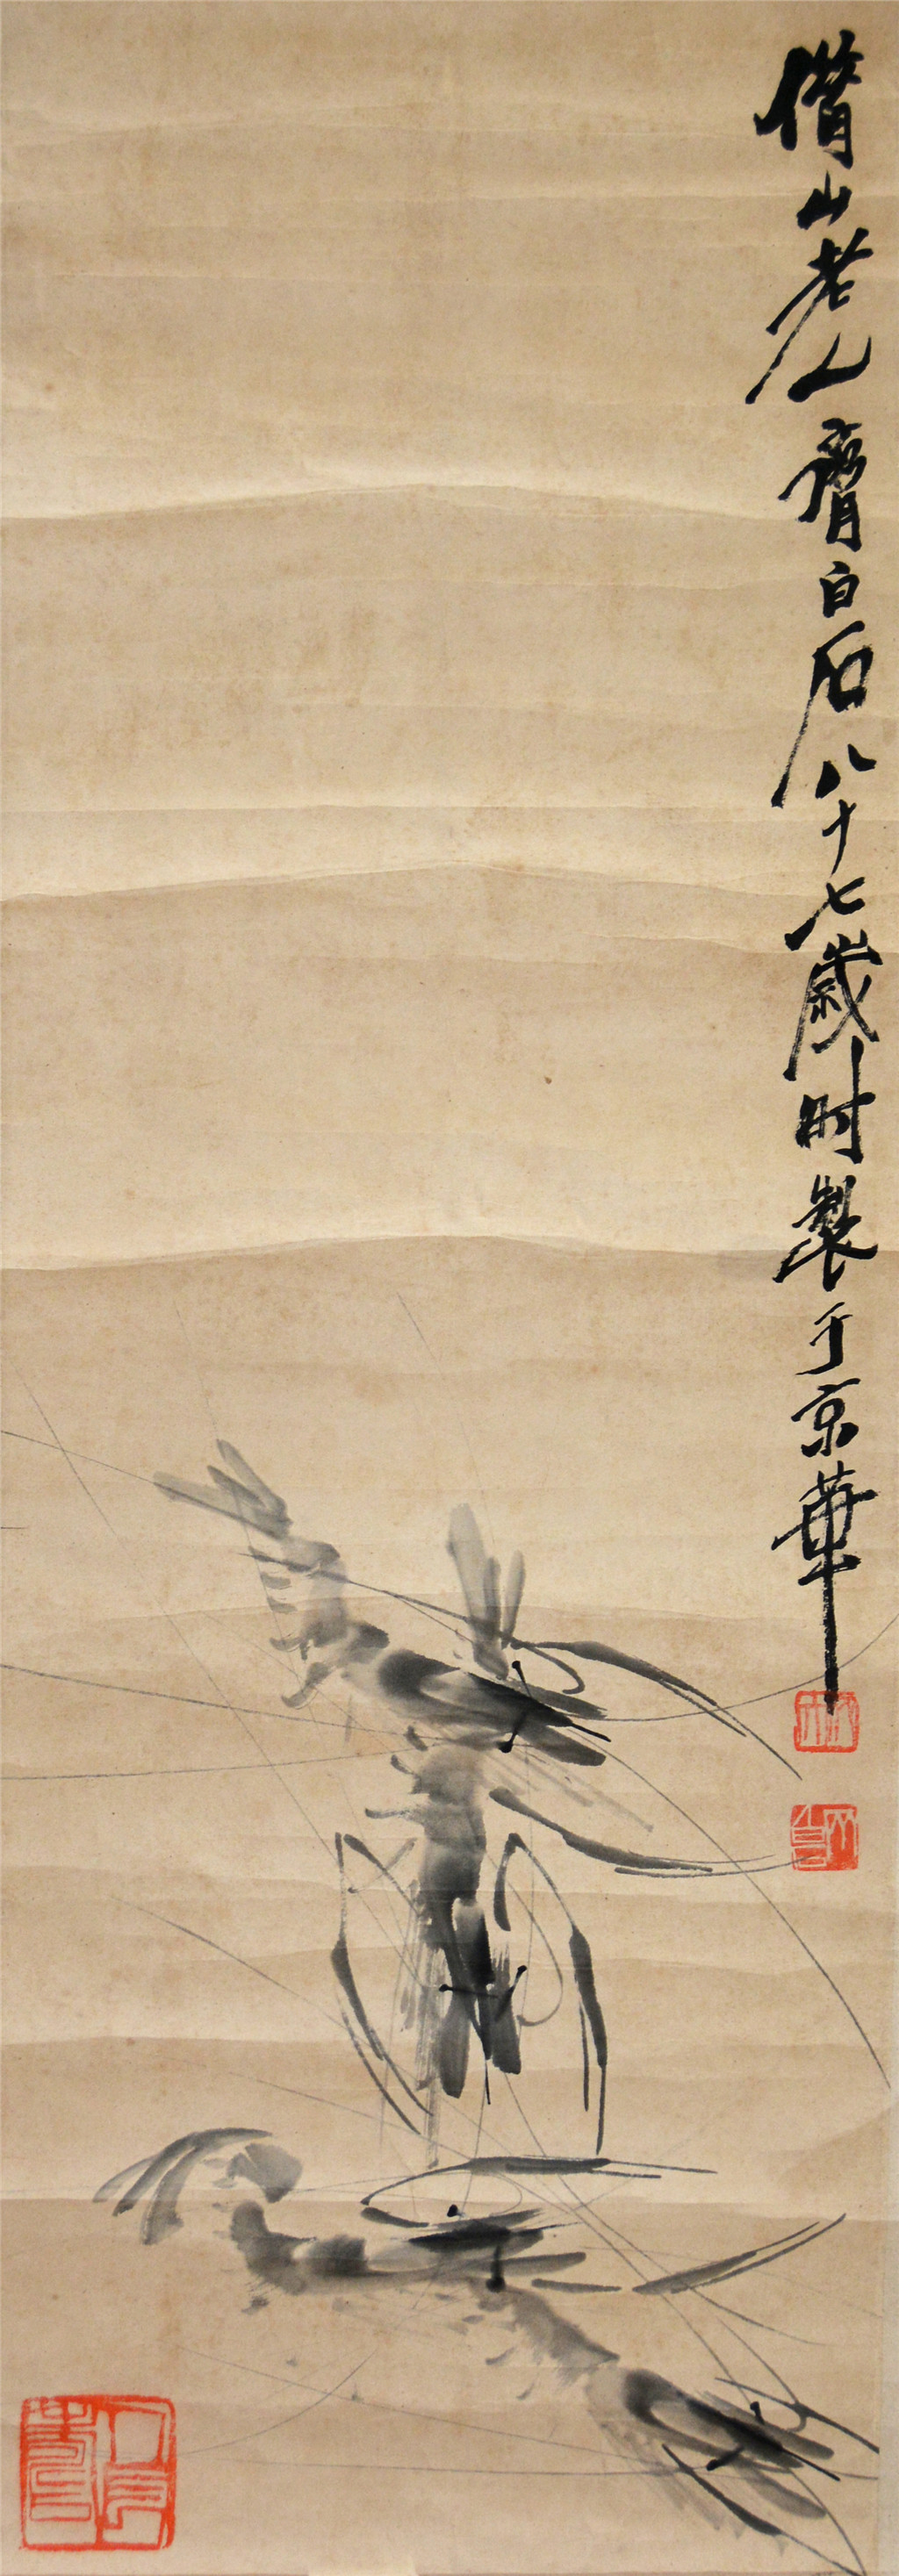 借山老人齊白石八十七歲时製于京華
木人